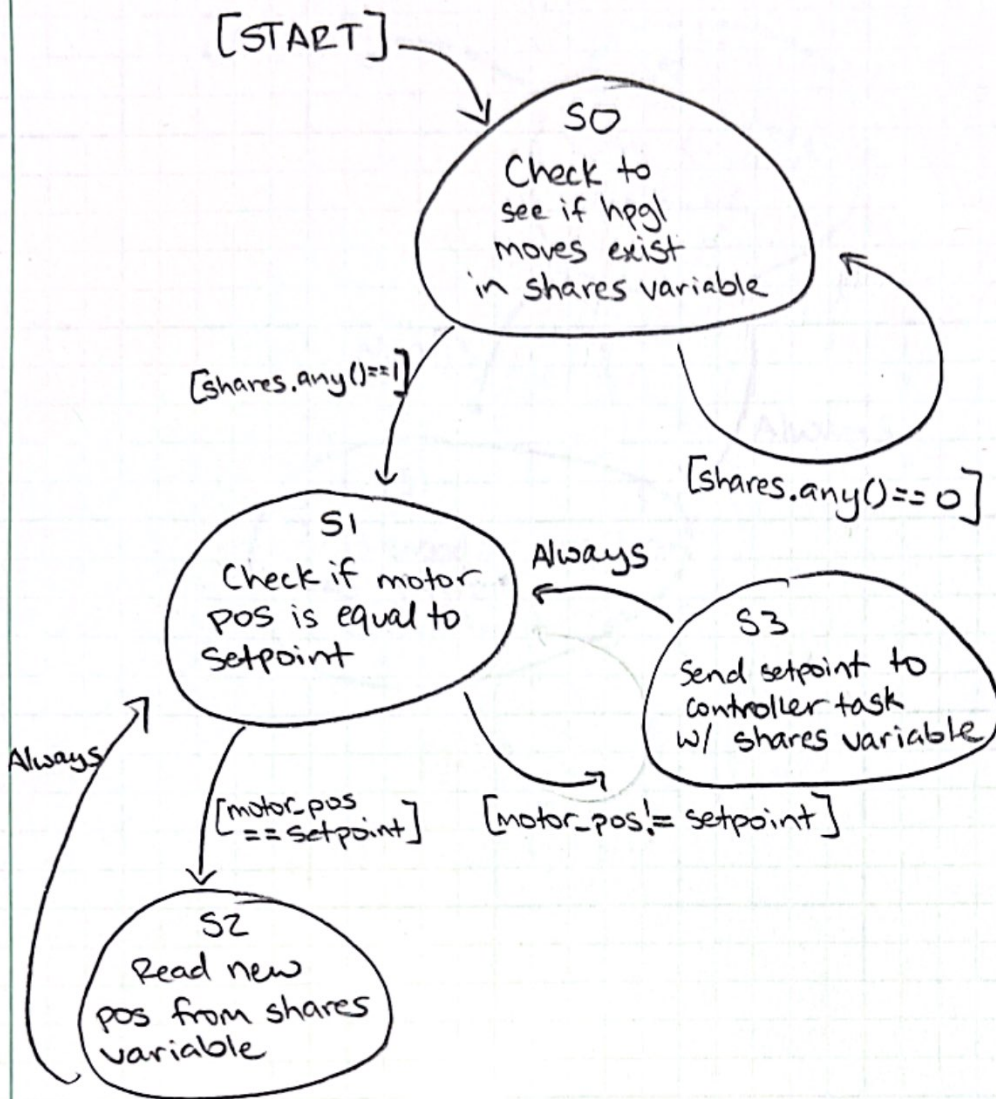 [START]
S0
Check to
see if hpgl
moves exist
in shares variable
[shares.any()==1]
[shares.any()==0]
S1
Check if motor
pos is equal to
setpoint
Always
S3
Send setpoint to
controller task
w/ shares variable
Always
[motor_pos
== setpoint]
[motor_pos!= setpoint]
S2
Read new
pos from shares
variable